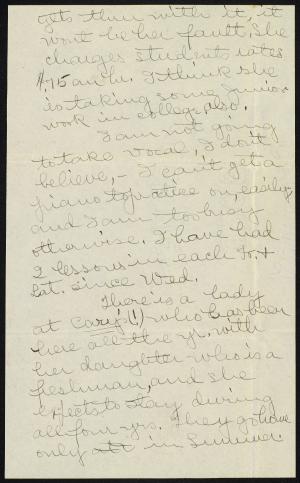 gets thru with it, it
won't be her fault. She
charges students rates
$.75 an hr. I think she
is taking some Junior
work in college, also.
I am not going
to take vocal, I don't
believe, – I can't get a
piano to practice on, easily
and I am too busy
otherwise. I have had
2 lessons in each Fr. +
Lat. since Wed.
There is a lady
at Cary (!) who has been
here all the yr. with
her daughter who is a
freshman, and she
expects to stay during
all four yrs. They go home
only in Summer.